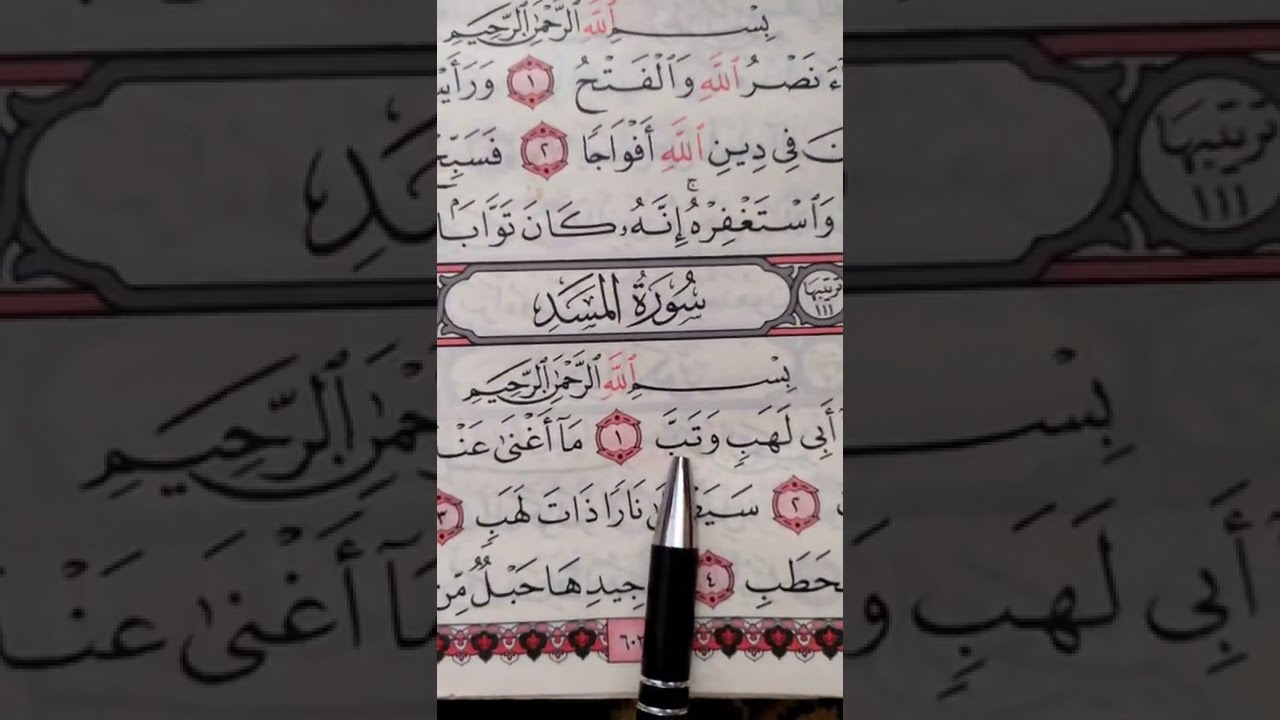 بِسْمِ ٱللَّهِ ٱلرَّحْمَٰنِ ٱلرَّحِيمِ
نَصْرُ ٱللَّهِ وَٱلْفَتْحُ ١
فِي دِينِ ٱللَّهِ أَفْوَاجًا ٢
وَٱسْتَغْفِرْهُ ۚ إِنَّهُۥ كَانَ تَوَّابًۢا
سُورَةُ المَسَدِ
تَرْتِيبُهَا ١١١
بِسْمِ ٱللَّهِ ٱلرَّحْمَٰنِ ٱلرَّحِيمِ
أَبِي لَهَبٍ وَتَبَّ ١ مَآ أَغْنَىٰ
نَارًا ذَاتَ لَهَبٍ ٣
٤ جِيدِهَا حَبْلٌ مِّن